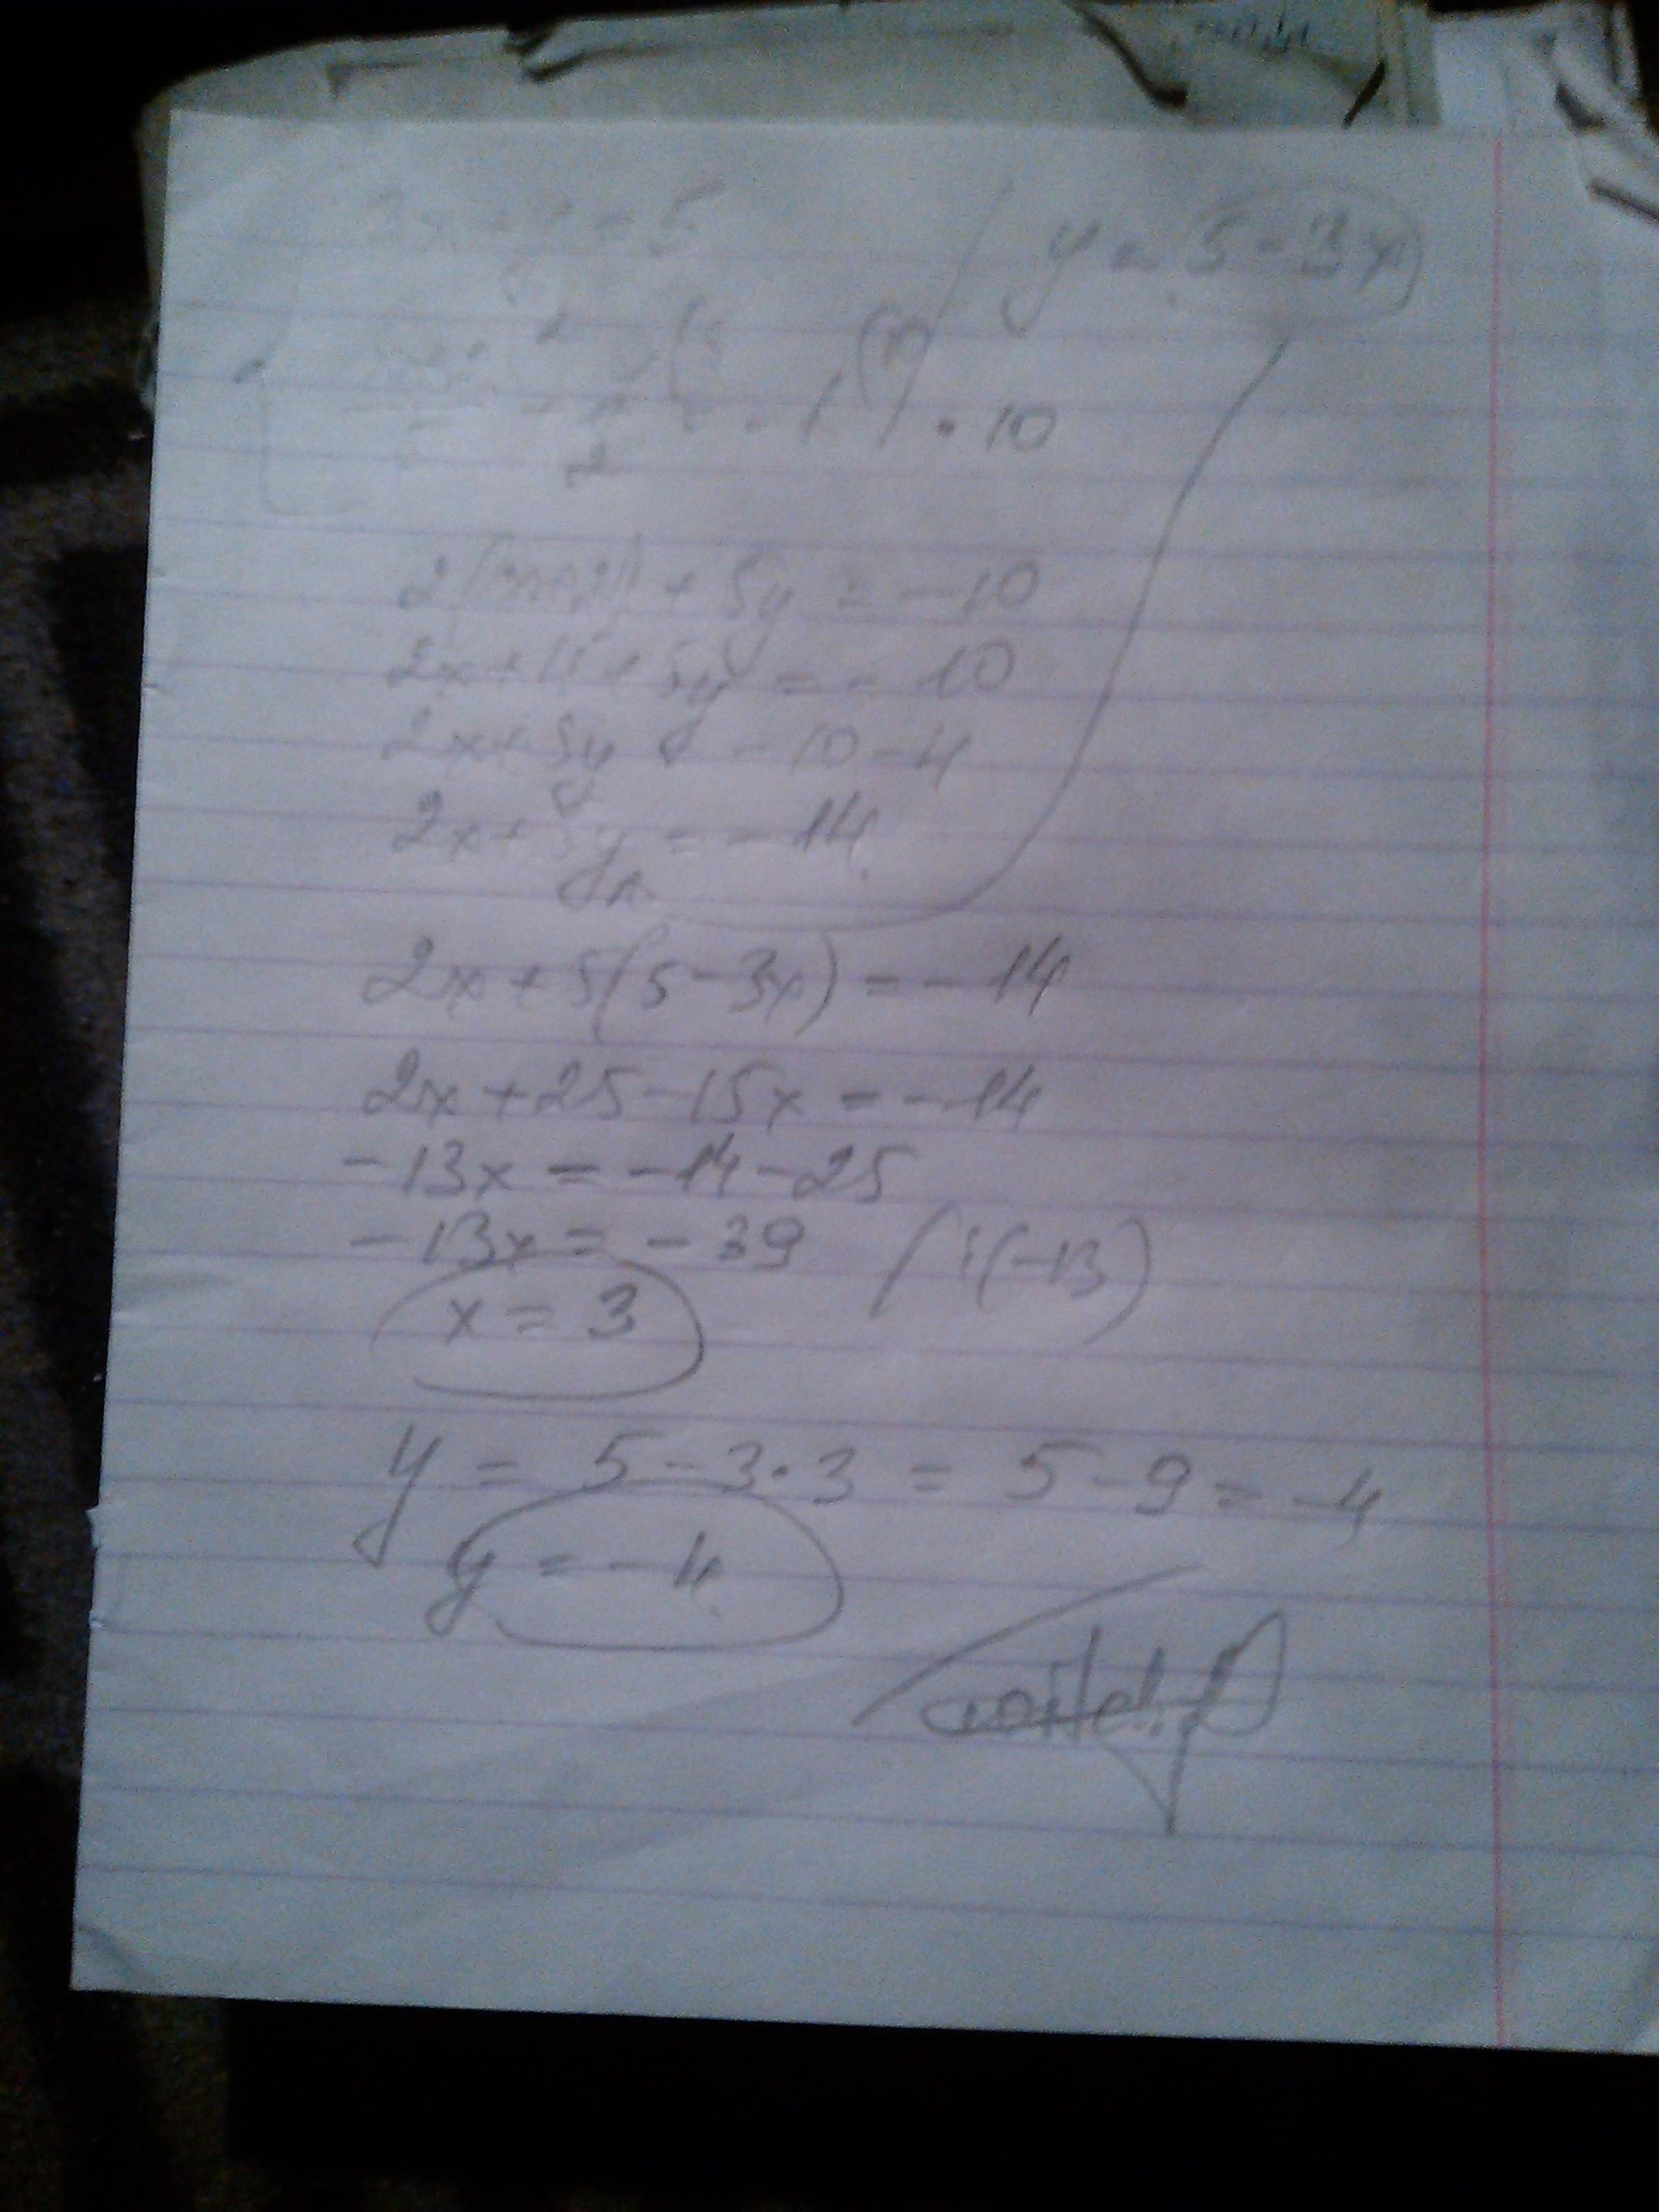 = 5
y = 5 - 3x
2
= -1 / · 10
2
2( ) + 5y = -10
2x + 4 + 5y = -10
2x + 5y = -10 - 4
2x + 5y = -14
2x + 5(5 - 3x) = -14
2x + 25 - 15x = -14
-13x = -14 - 25
-13x = -39 / :(-13)
x = 3
y = 5 - 3·3 = 5 - 9 = -4
y = -4